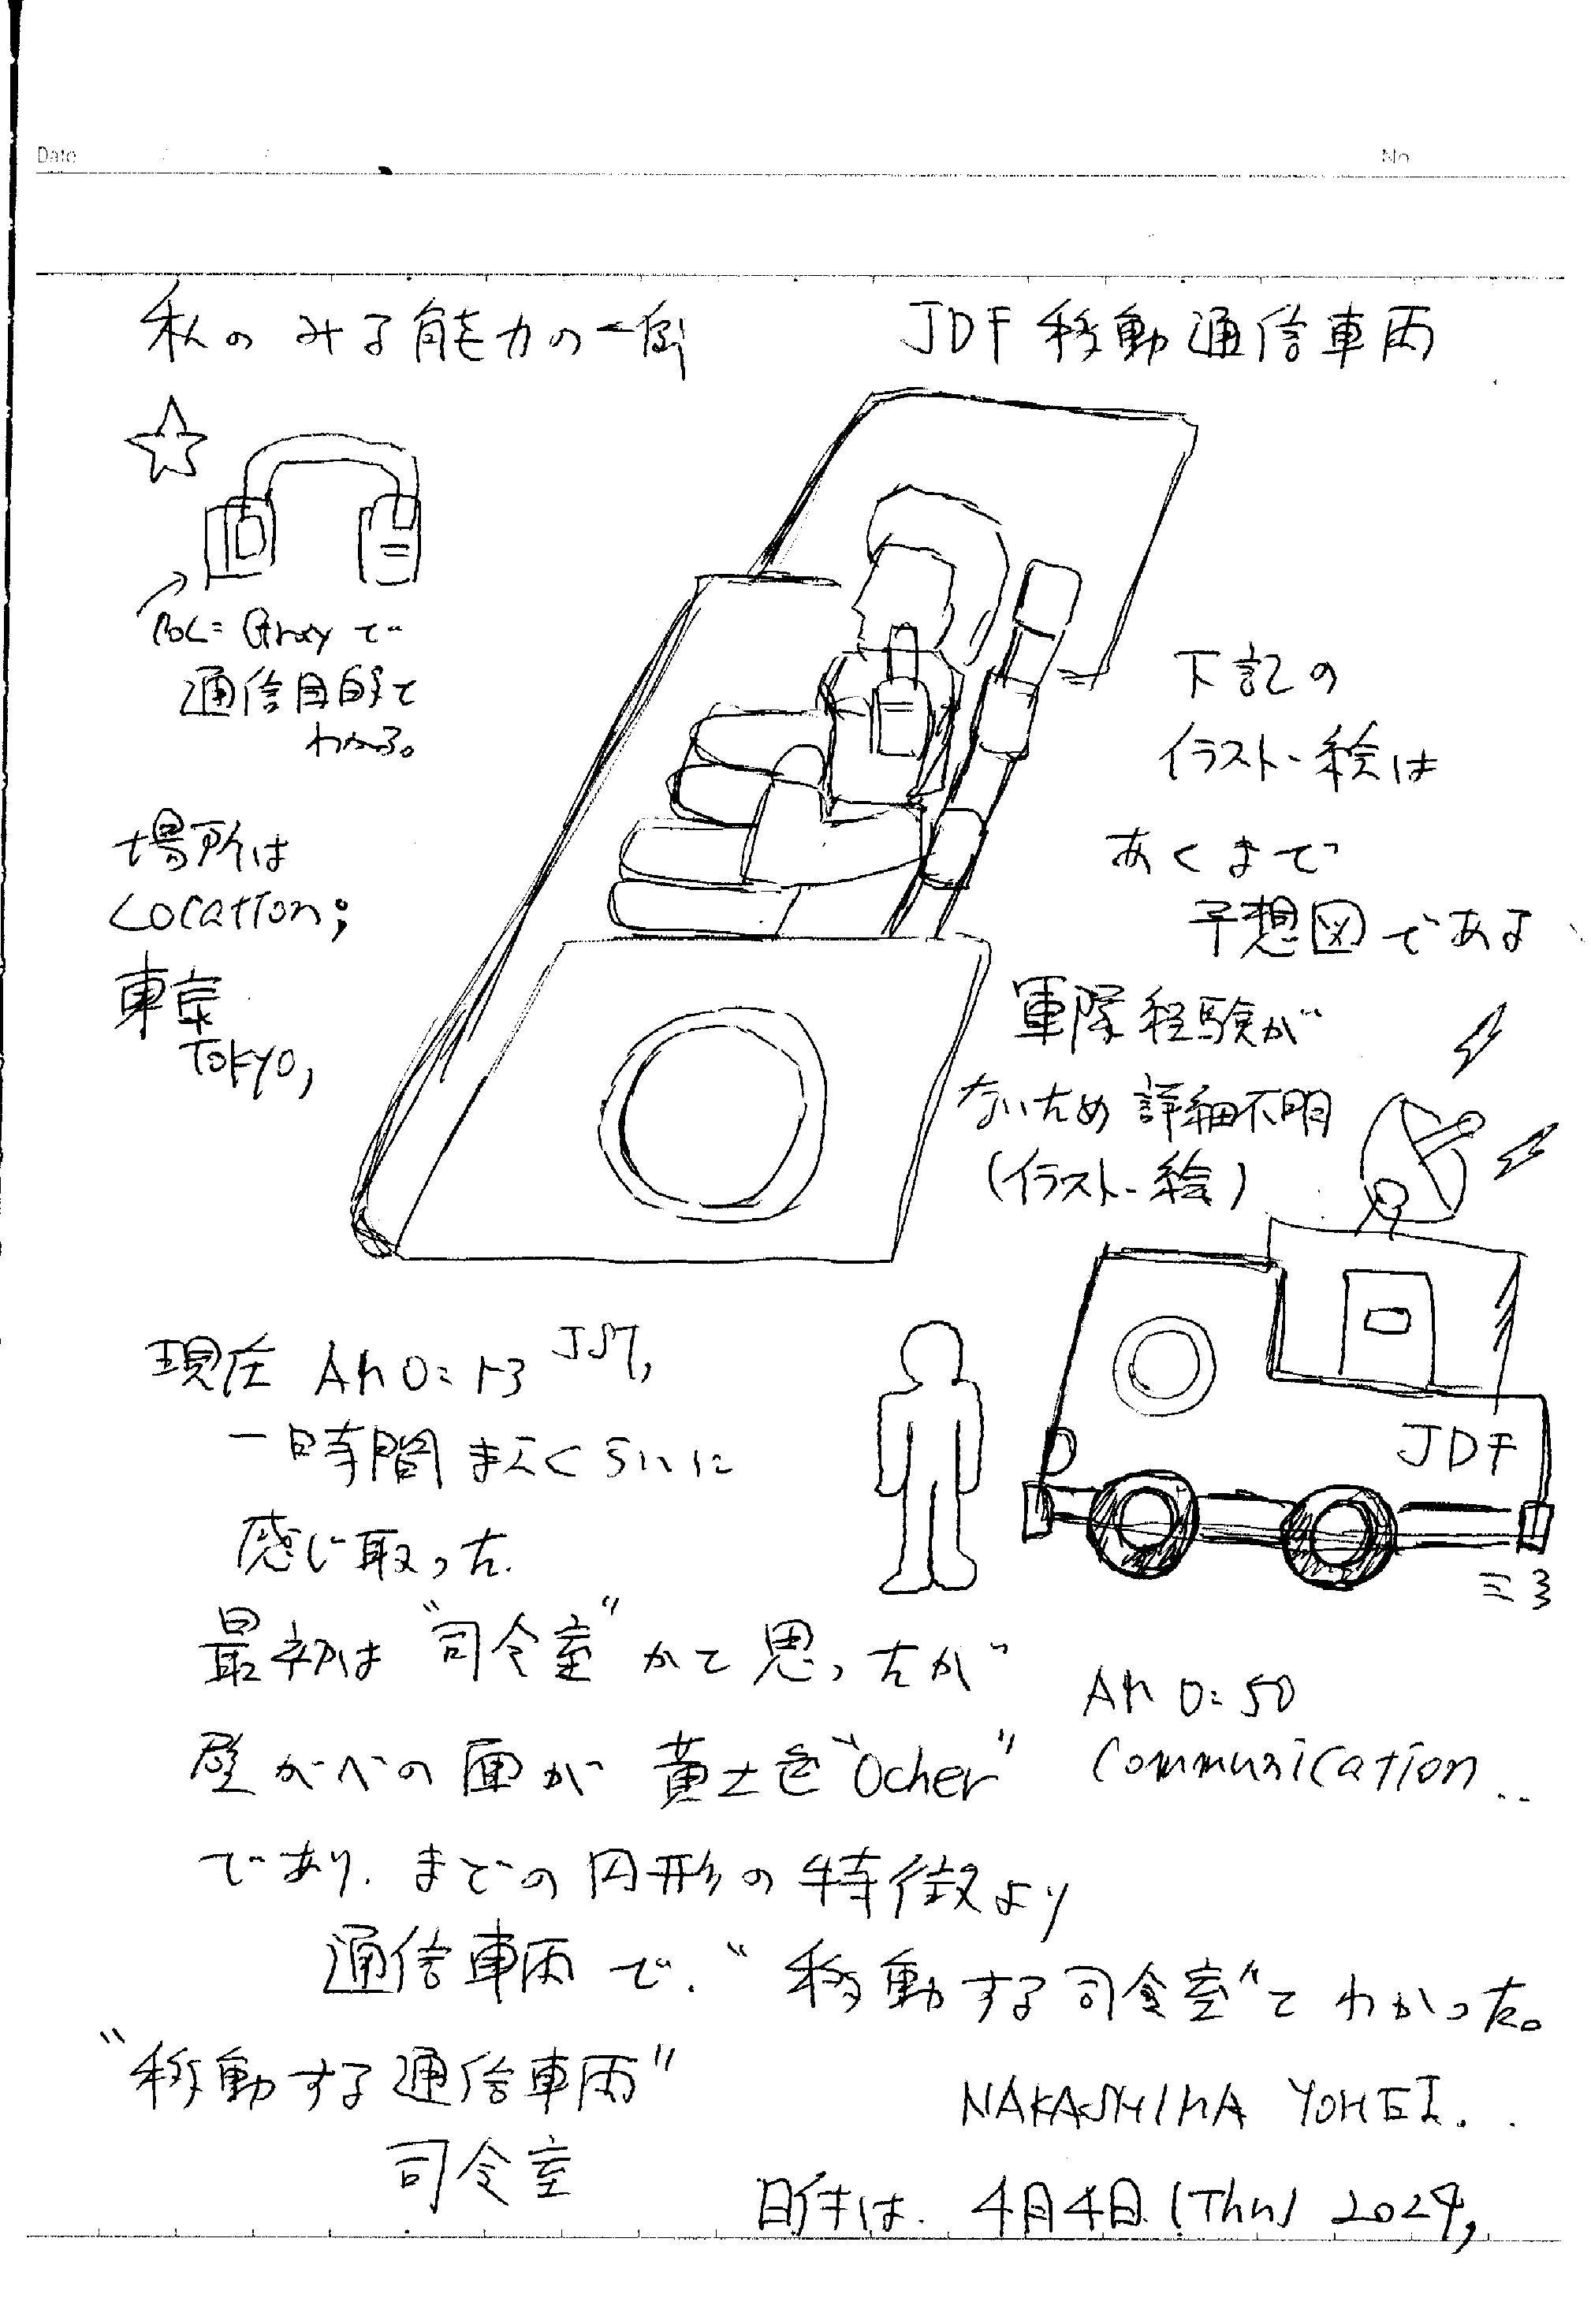 Date
No
私のみる能力の一例
JDF 移動通信車両
Gray で
通信目的で
わかる。
場所は
Location;
東京
TOKYO,
下記の
イラスト-絵は
あくまで
予想図である
軍隊経験が
ないため 詳細不明
(イラスト-絵)
現在 AM 0:13 JST,
一時間まえくらいに
感じ取った.
JDF
最初は“司令室”かと思ったが
AM 0:50
Communication..
壁かべの面が 黄土色“Ocher”
であり. まどの円形の特徴より
通信車両で.“移動する司令室”とわかった。
“移動する通信車両”
司令室
NAKASHIMA YOHEI..
日付は. 4月4日 (Thu) 2024,